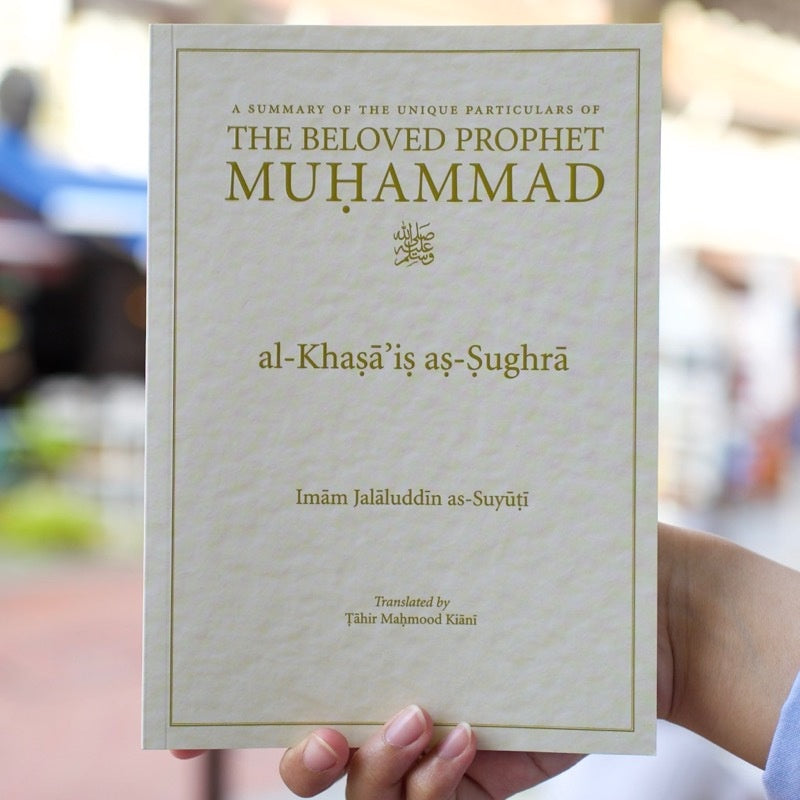 A SUMMARY OF THE UNIQUE PARTICULARS OF
THE BELOVED PROPHET
MUḤAMMAD
صلى الله عليه وسلم
al-Khaṣā’iṣ aṣ-Ṣughrā
Imām Jalāluddīn as-Suyūṭī
Translated by
Ṭāhir Maḥmood Kiānī